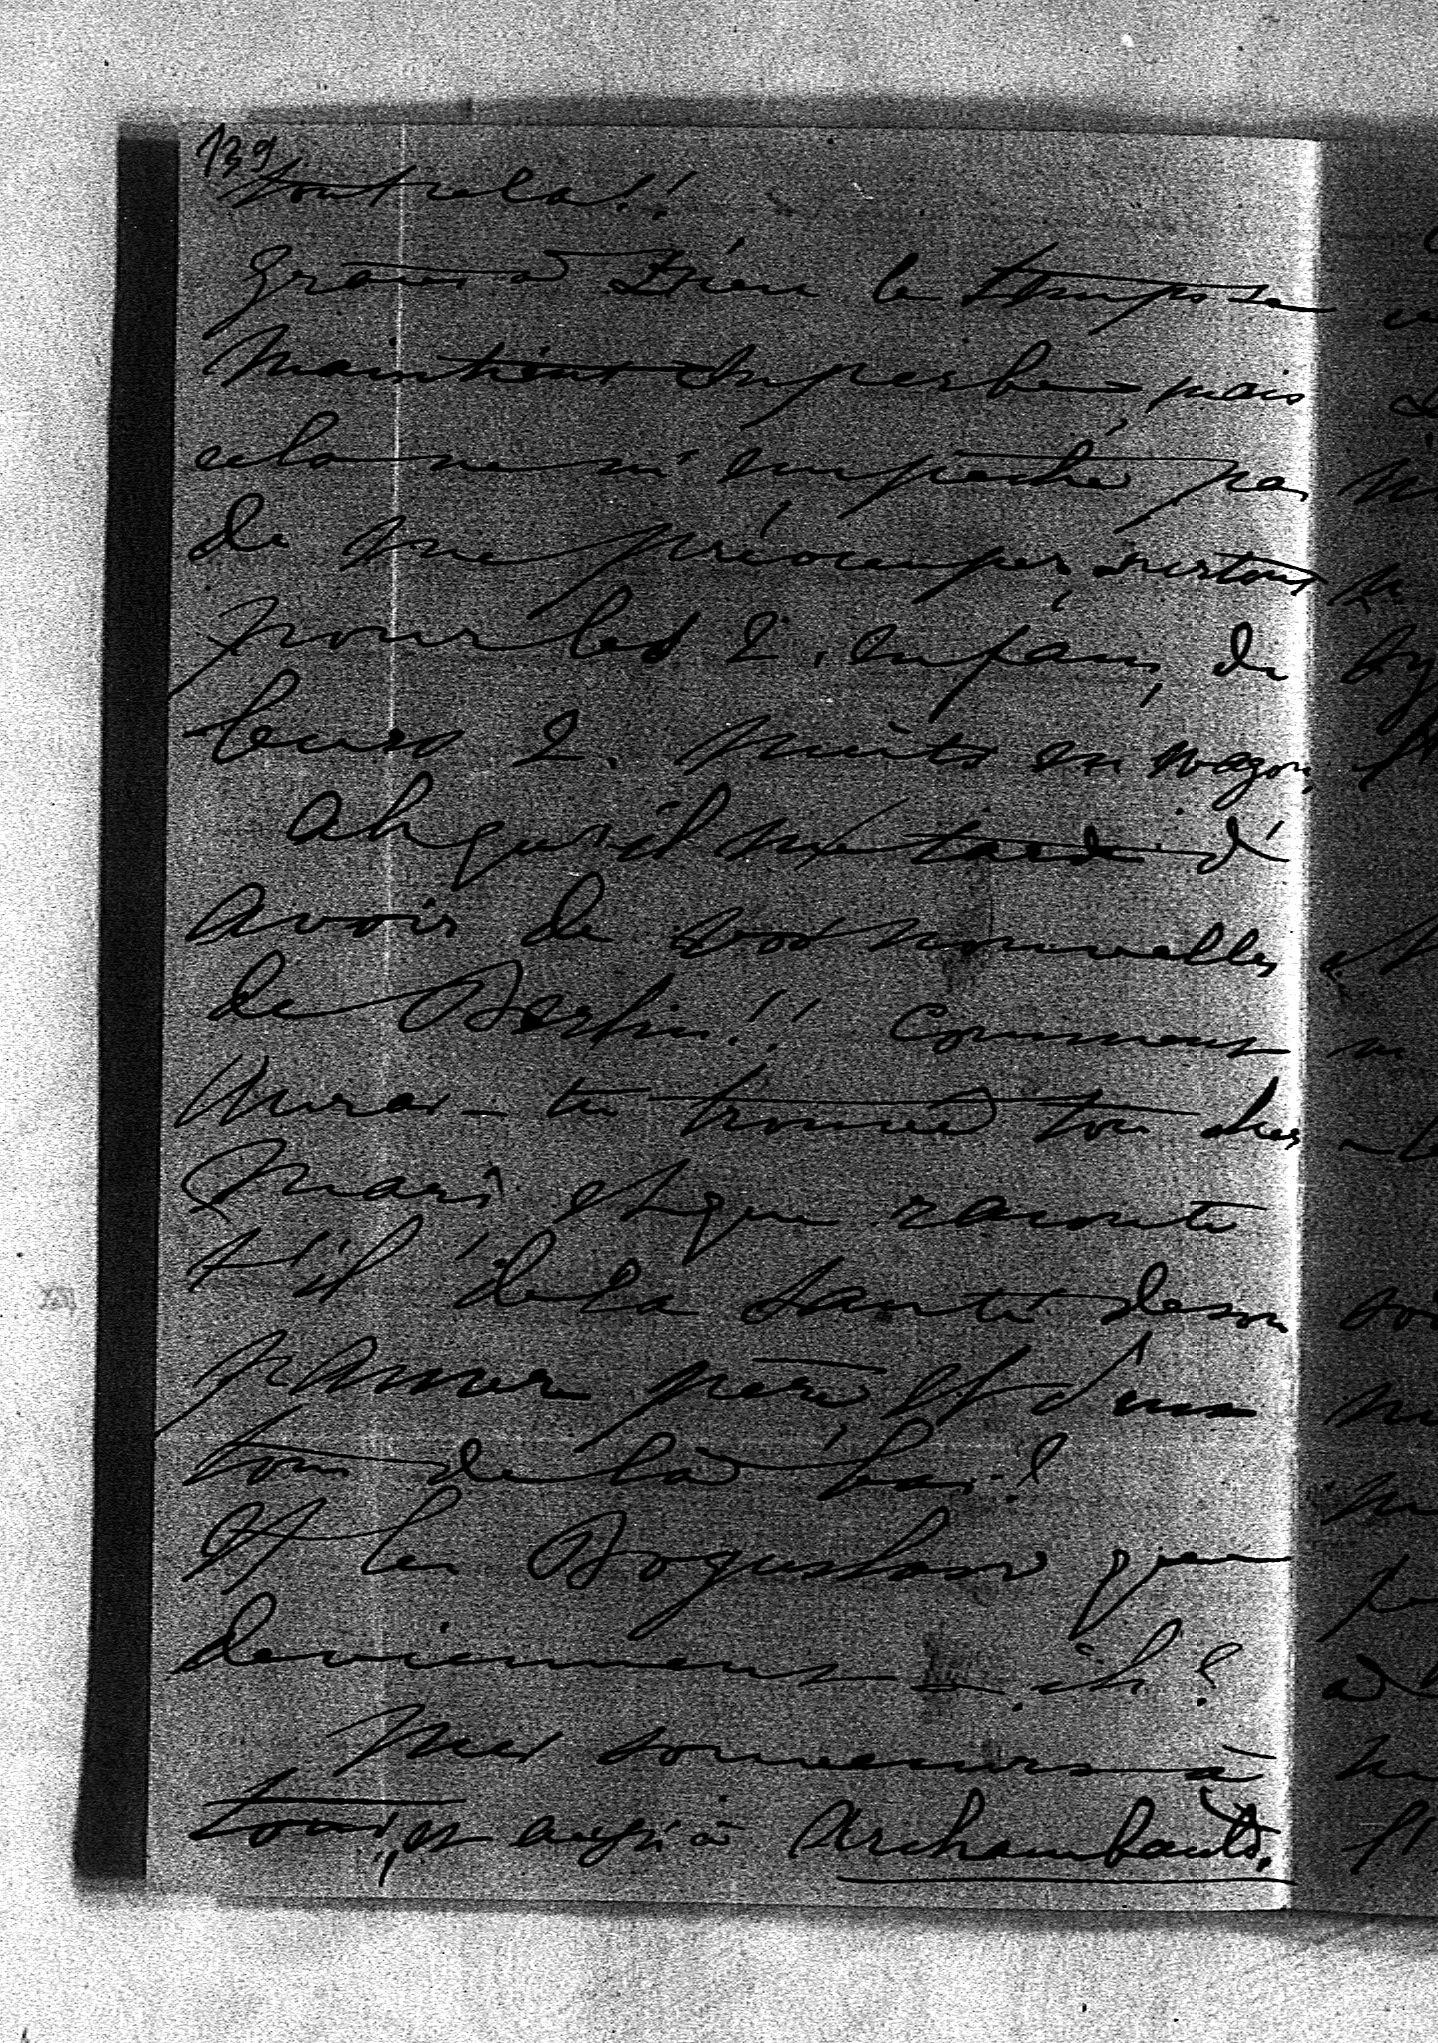 139
tout cela!!
Graces à Dieu le temps se
maintient superbe, mais
cela ne m'empêche pas
de me préocuper, surtout
pour les 2. enfans, de
leurs 2. nuits en wagon,
Ah qu'il me tarde d'
avoir de vos nouvelles
de Berlin!! Comment
auras-tu trouvé ton cher
Mari et que raconte
t'il de la santé de son
pauvre père, et d'eux
tous de là bas?
Et les Boguslaw que
deviennent-ils?
Mes souvenirs à
tous, et aussi à Archambault.